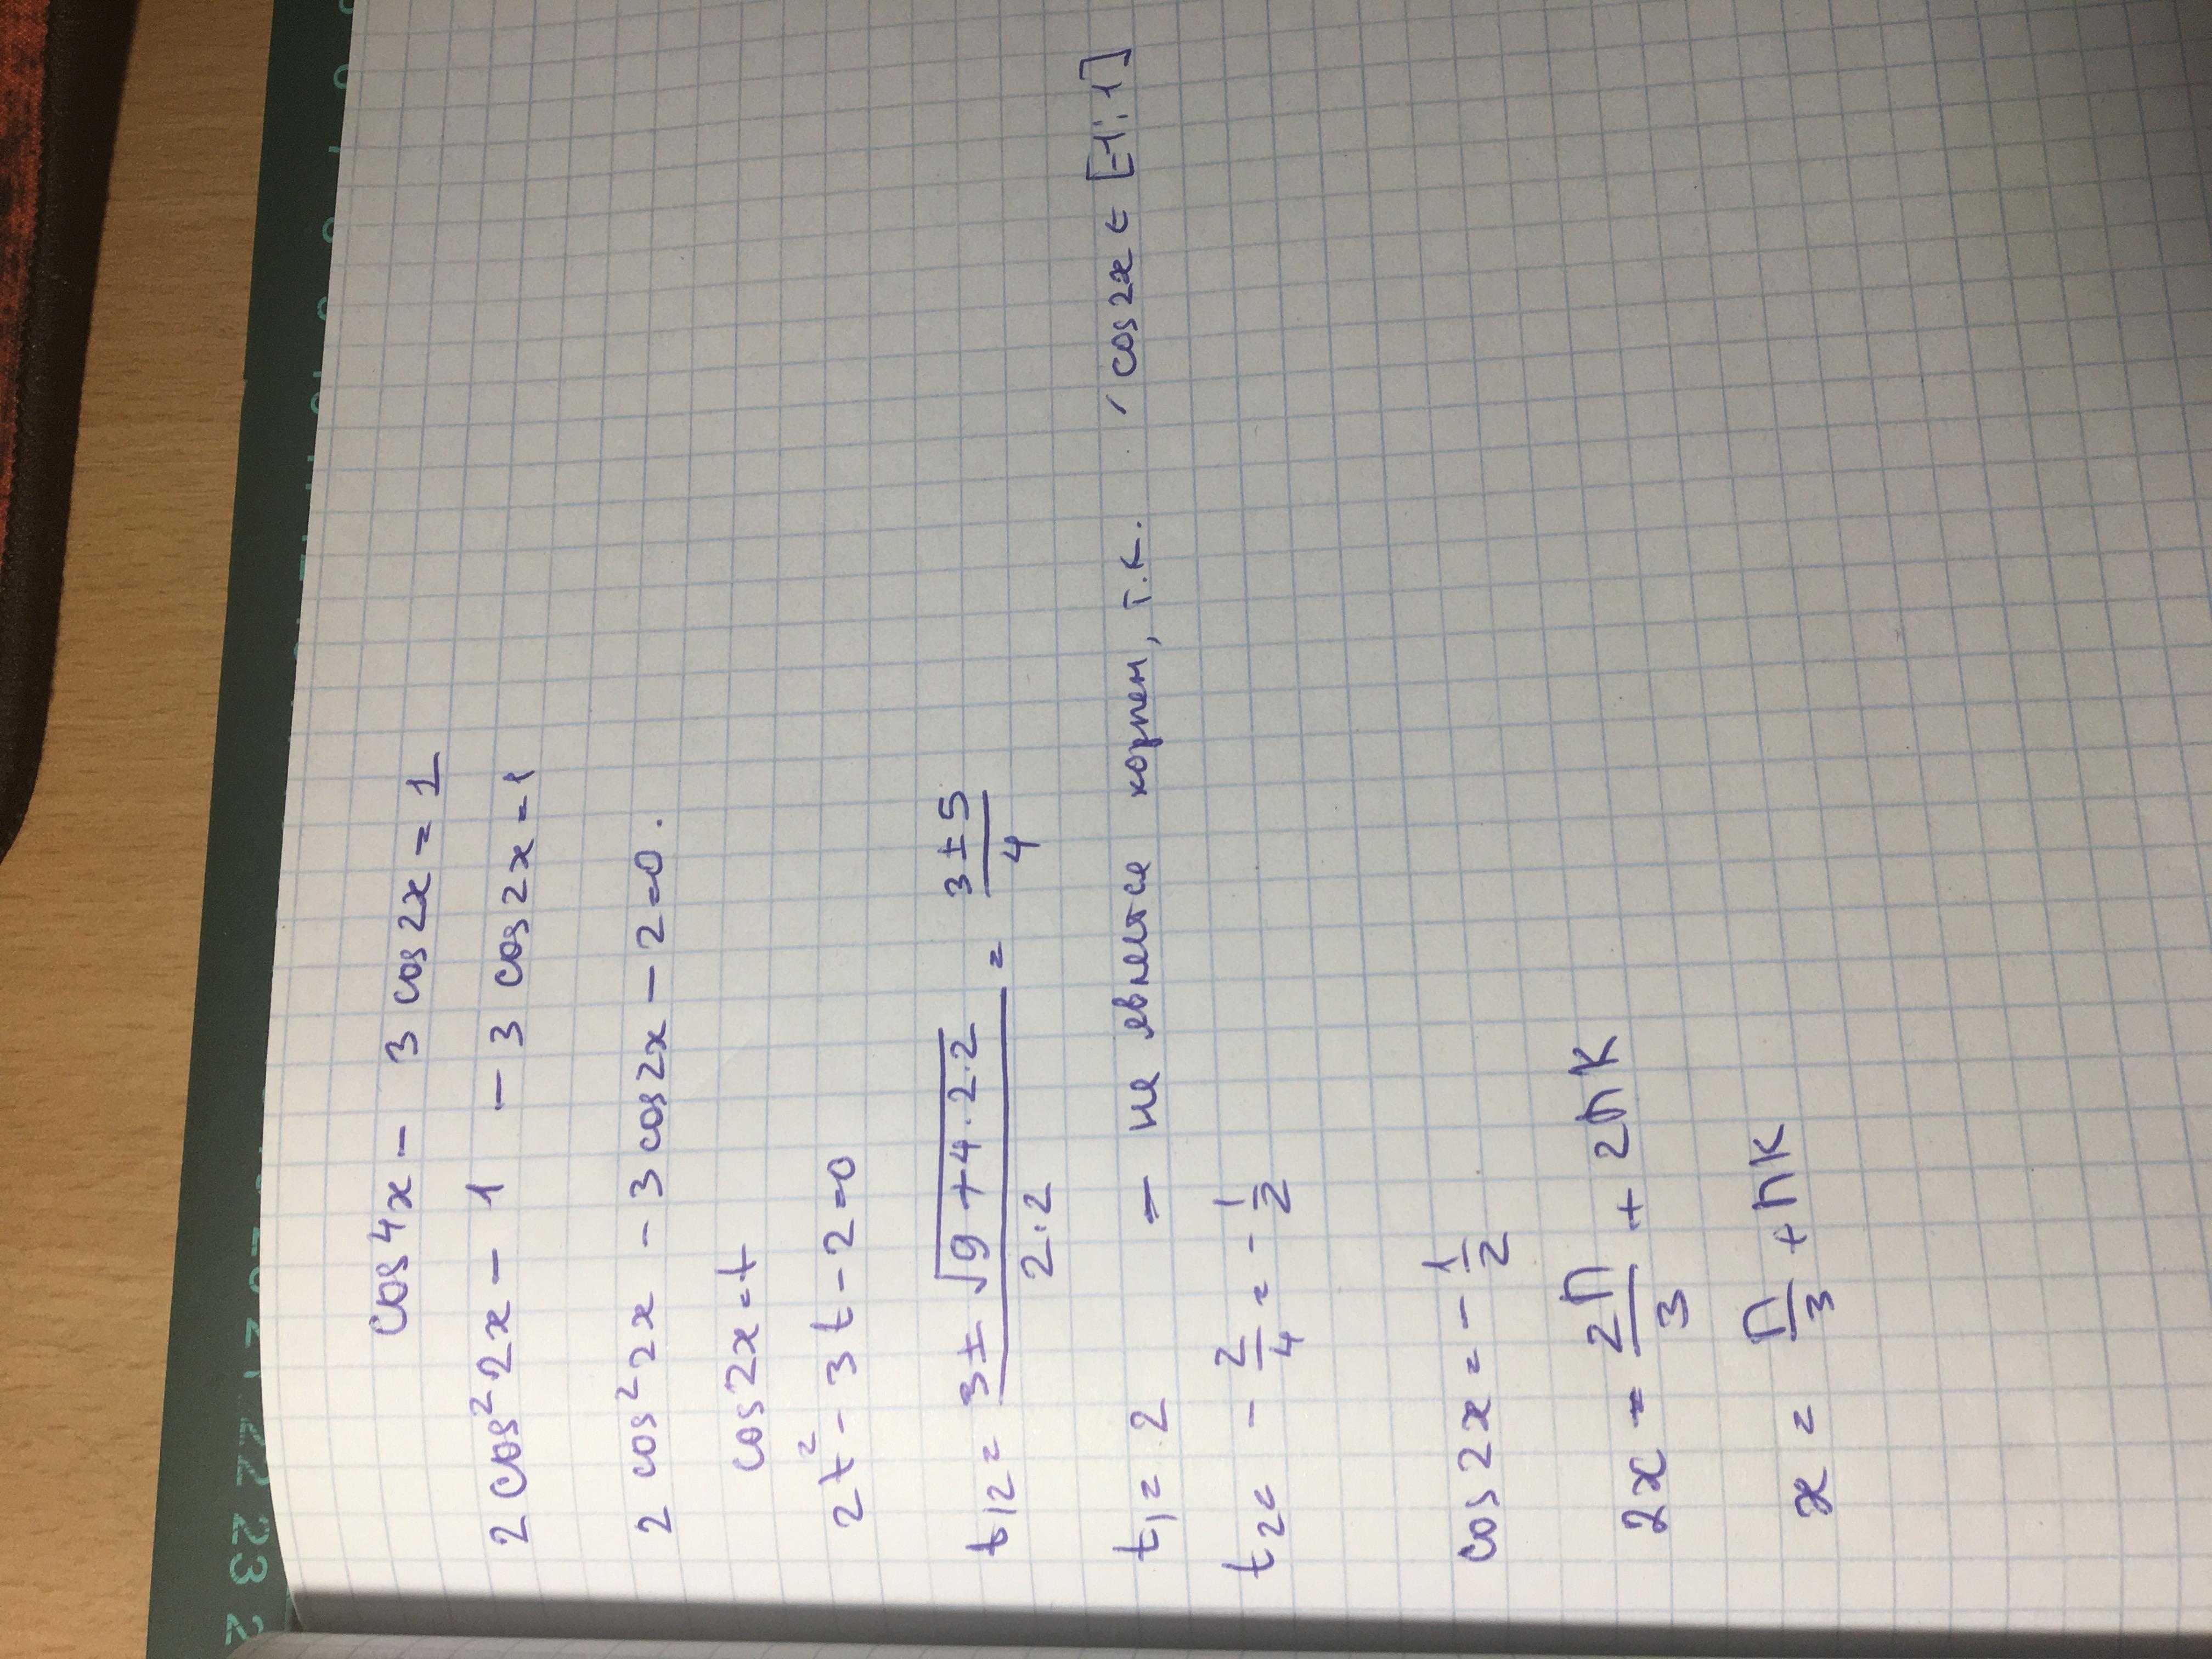 cos4x - 3cos2x = 1
2cos²2x - 1 - 3cos2x = 1
2cos²2x - 3cos2x - 2 = 0.
cos2x = t
2t² - 3t - 2 = 0
t₁₂ = (3 ± √(9 + 4·2·2))/(2·2) = (3 ± 5)/4
t₁ = 2 - не является корнем, т.к. cos2x ∈ [-1; 1]
t₂ = -2/4 = -1/2
cos2x = -1/2
2x = 2π/3 + 2πк
x = π/3 + πк
22 23 2